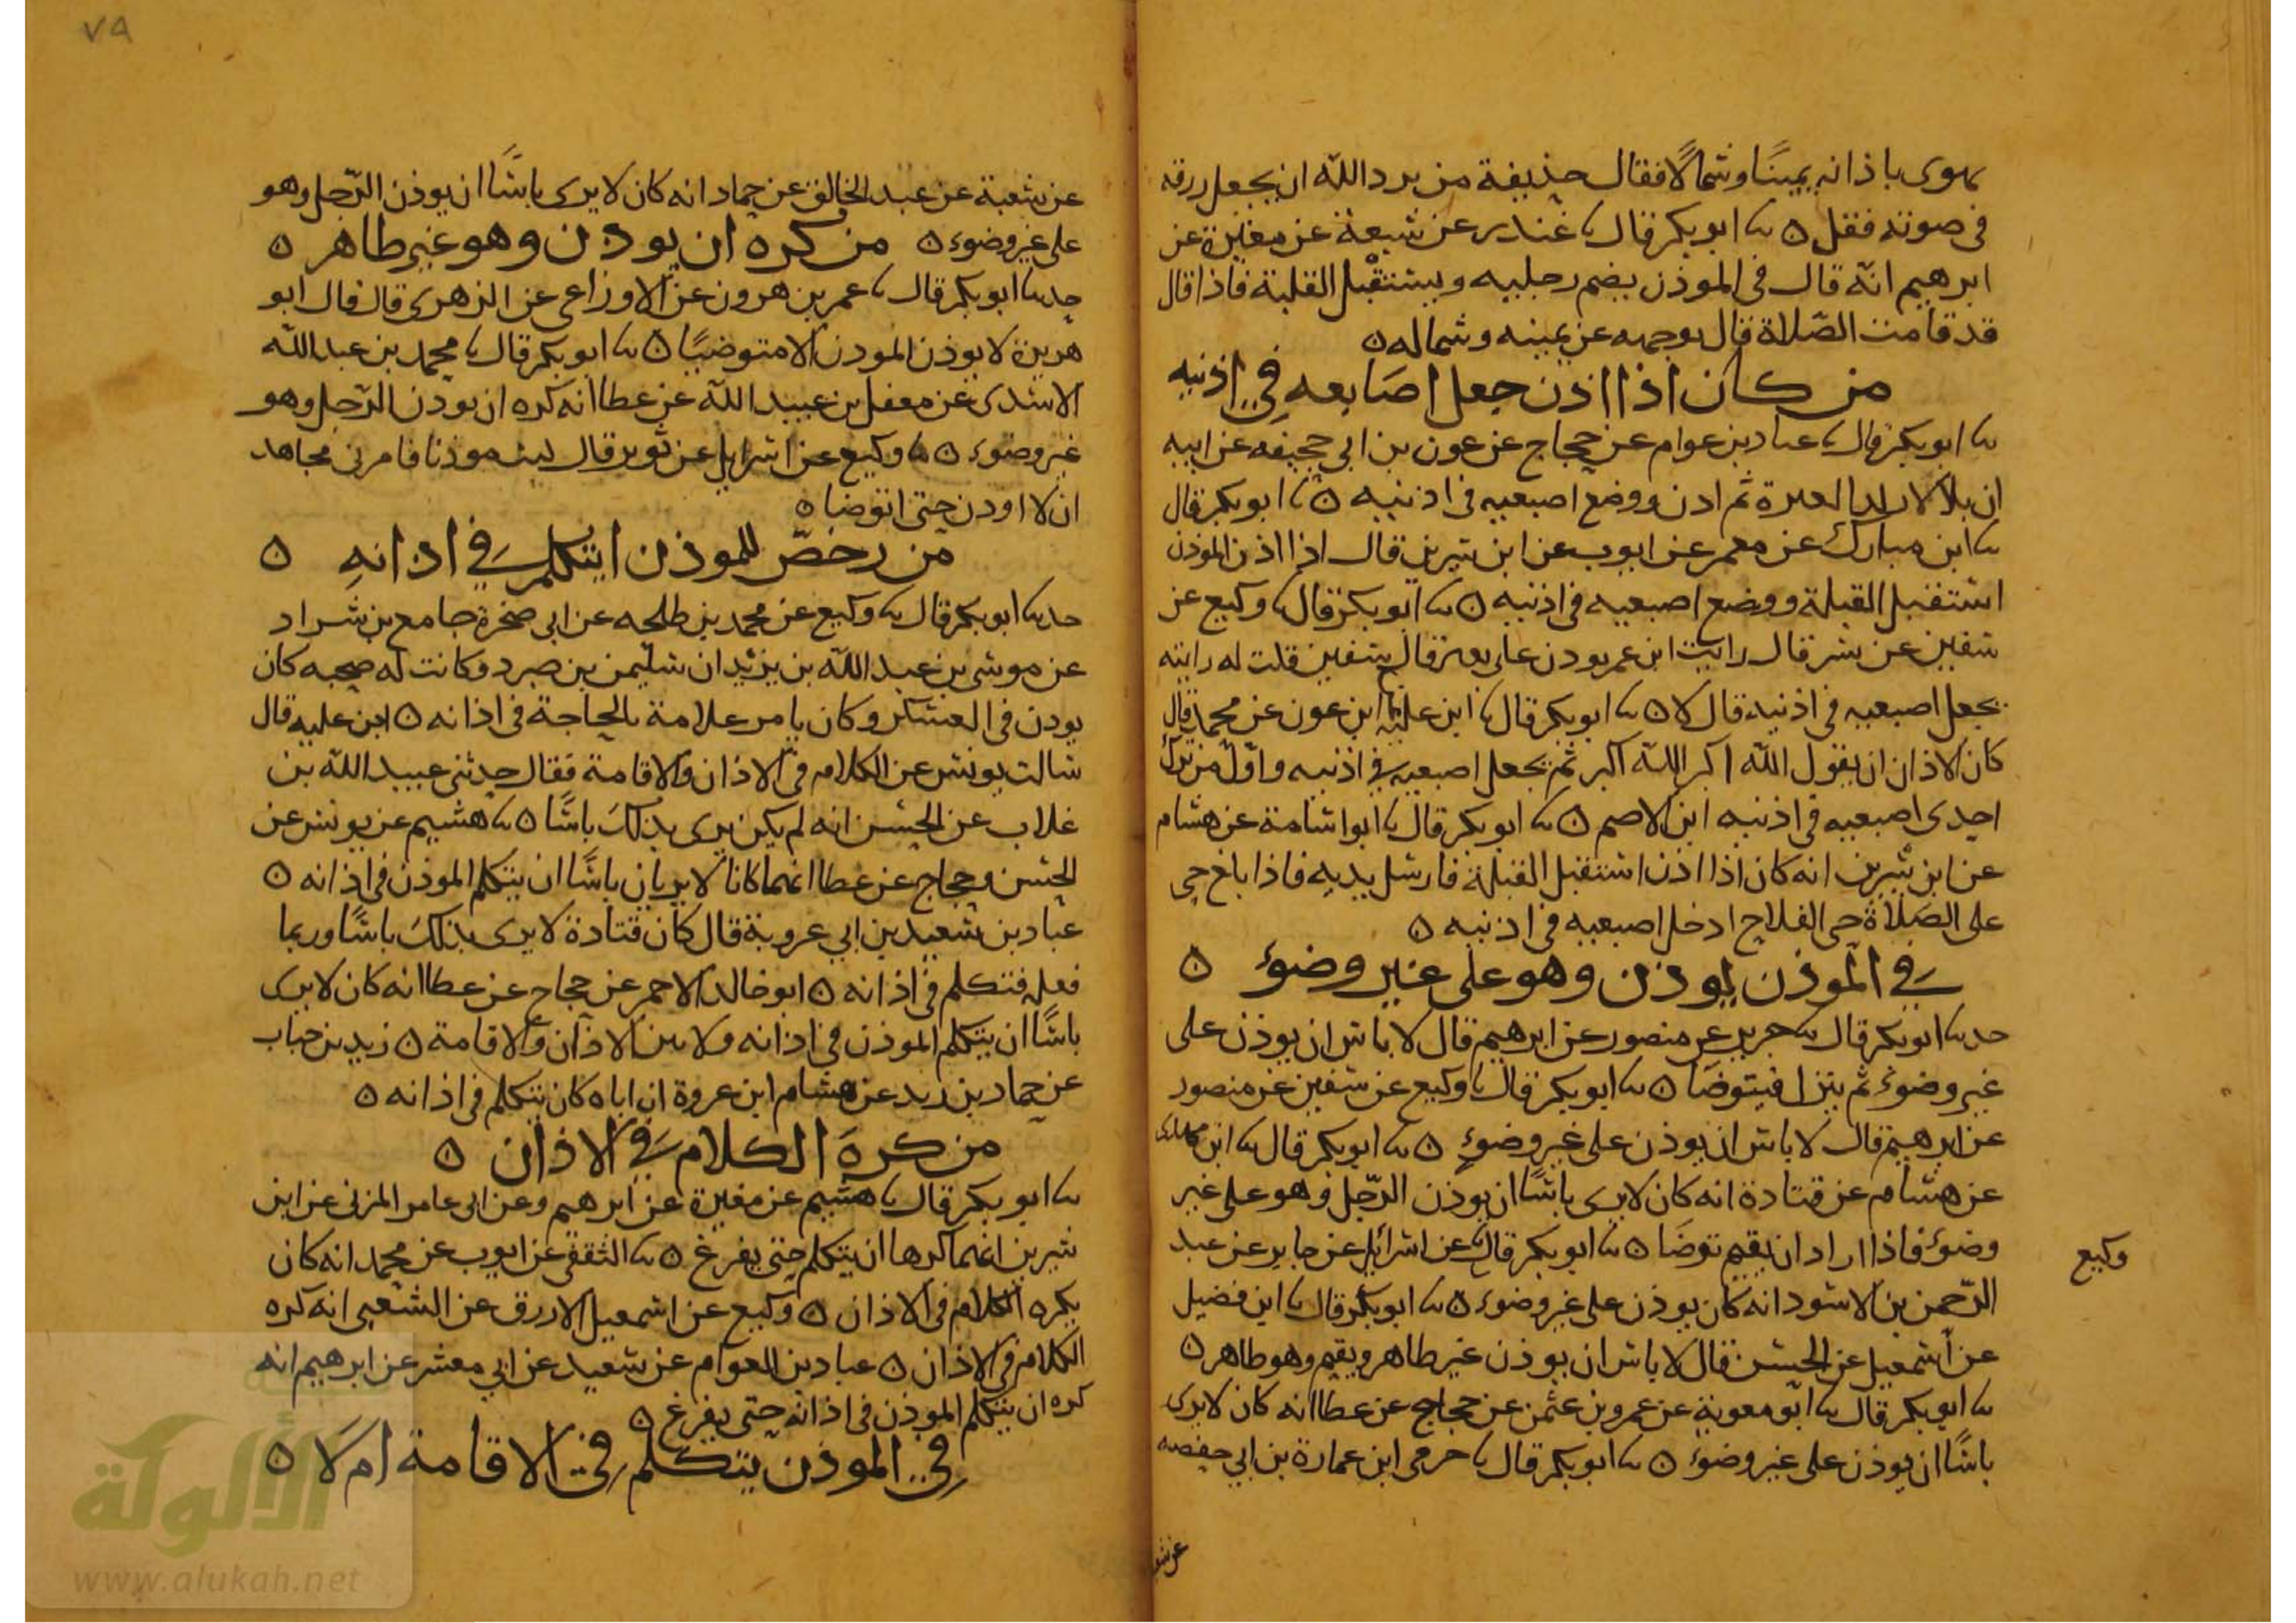 يهوى باذانه يمينًا وشمالًا فقال حذيفة من يرد الله ان يجعل رزقه
في صوته فعل ٥ نا ابو بكر قال نا غندر عن شعبة عن مغيرة عن
ابرهيم انه قال في الموذن يضم رجليه ويستقبل القبلة فاذا قال
قد قامت الصلاة قال بوجهه عن يمينه وشماله ٥
من كان اذا اذن جعل اصابعه في اذنيه
نا ابو بكر قال نا عباد بن عوام عن حجاج عن عون بن ابي جحيفه عن ابيه
ان بلالا ثم اذن ووضع اصبعيه في اذنيه ٥ نا ابو بكر قال
نا ابن مبارك عن معمر عن ايوب عن ابن سيرين قال اذا اذن الموذن
استقبل القبلة ووضع اصبعيه في اذنيه ٥ نا ابو بكر قال نا وكيع عن
سفين عن نسر قال رايت ابن عمر يوذن على بعير قال سفين قلت له رايته
يجعل اصبعيه في اذنيه قال لا ٥ نا ابو بكر قال نا ابن علية نا ابن عون عن محمد قال
كان الاذان ان يقول الله اكبر الله اكبر ثم يجعل اصبعيه في اذنيه واول من ترك
احدى اصبعيه في اذنيه ابن الاصم ٥ نا ابو بكر قال نا ابو اسامة عن هشام
عن ابن سيرين انه كان اذا اذن استقبل القبلة فارسل يديه فاذا بلغ حي
على الصلاة حي الفلاح ادخل اصبعيه في اذنيه ٥
في الموذن يوذن وهو على غير وضوء ٥
حدنا ابو بكر قال نا جرير عن منصور عن ابرهيم قال لا باس ان يوذن على
غير وضوء ثم ينزل فيتوضا ٥ نا ابو بكر قال نا وكيع عن سفين عن منصور
عن ابرهيم قال لا باس ان يوذن على غير وضوء ٥ نا ابو بكر قال نا ابن مهدى
عن هشام عن قتادة انه كان لا يرى باسًا ان يوذن الرّجل وهو على غير
وضوء فاذا اراد ان يقيم توضا ٥ نا ابو بكر قال نا عن اسرائيل عن جابر عن عبد
وكيع
الرّحمن بن الاسود انه كان يوذن على غير وضوء ٥ نا ابو بكر قال نا ابن فضيل
عن اسمعيل عن الحسن قال لا باس ان يوذن غير طاهر ويقيم وهو طاهر ٥
نا ابو بكر قال نا ابو معوية عن عمرو بن عثمن عن حجاج عن عطا انه كان لا يرى
باسًا ان يوذن على غير وضوء ٥ نا ابو بكر قال نا حرمى ابن عمارة بن ابي حفصه
عن شعبة
٧٩
عن شعبة عن عبد الخالق عن حماد انه كان لا يرى باسًا ان يوذن الرّجل وهو
على غير وضوء ٥ من كره ان يوذن وهو غير طاهر ٥
حدنا ابو بكر قال نا عمر بن هرون عن الاوزاعي عن الزهرى قال قال ابو
هريرة لا يوذن الموذن الا متوضيًا ٥ نا ابو بكر قال نا محمد بن عبد الله
الاسدى عن معقل بن عبيد الله عن عطا انه كره ان يوذن الرّجل وهو
غير وضوء ٥ نا وكيع عن اسرايل عن ثوير قال كنت موذنا فامرنى مجاهد
ان لا اوذن حتى اتوضا ٥
من رخصّ للموذن ان يتكلم في اذانه ٥
حدنا ابو بكر قال نا وكيع عن محمد بن طلحه عن ابي صخرة جامع بن شداد
عن موسى بن عبد الله بن يزيد ان سليمن بن صرد وكانت له صحبه كان
يوذن في العسكر وكان يامر غلامة بالحاجة في اذانه ٥ ابن عليه قال
سالت يونس عن الكلام في الاذان والاقامة فقال حدثني عبيد الله بن
غلاب عن الحسن انه لم يكن يرى بذلك باسًا ٥ نا هشيم عن يونس عن
الحسن وحجاج عن عطا انهما كانا لا يريان باسًا ان يتكلم الموذن في اذانه ٥
عباد بن سعيد بن ابي عروبة قال كان قتادة لا يرى بذلك باسًا وربما
فعله فتكلم في اذانه ٥ ابو خالد الاحمر عن حجاج عن عطا انه كان لا يرى
باسًا ان يتكلم الموذن في اذانه ولا بين الاذان والاقامة ٥ زيد بن حباب
عن حماد بن زيد عن هشام ابن عروة ان اباه كان يتكلم في اذانه ٥
من كره الكلام في الاذان ٥
نا ابو بكر قال نا هشيم عن مغيرة عن ابرهيم وعن ابي عامر المزنى عن ابن
سيرين انهما كرها ان يتكلم حتى يفرغ ٥ نا الثقفى عن ايوب عن محمد انه كان
يكره الكلام في الاذان ٥ وكيع عن اسمعيل الازرق عن الشعبى انه كره
الكلام في الاذان ٥ عباد بن العوام عن سعيد عن ابي معشر عن ابرهيم انه
كره ان يتكلم الموذن في اذانه حتى يفرغ ٥
في الموذن يتكلم في الاقامة ام لا ٥
شبكة
الألوكة
www.alukah.net